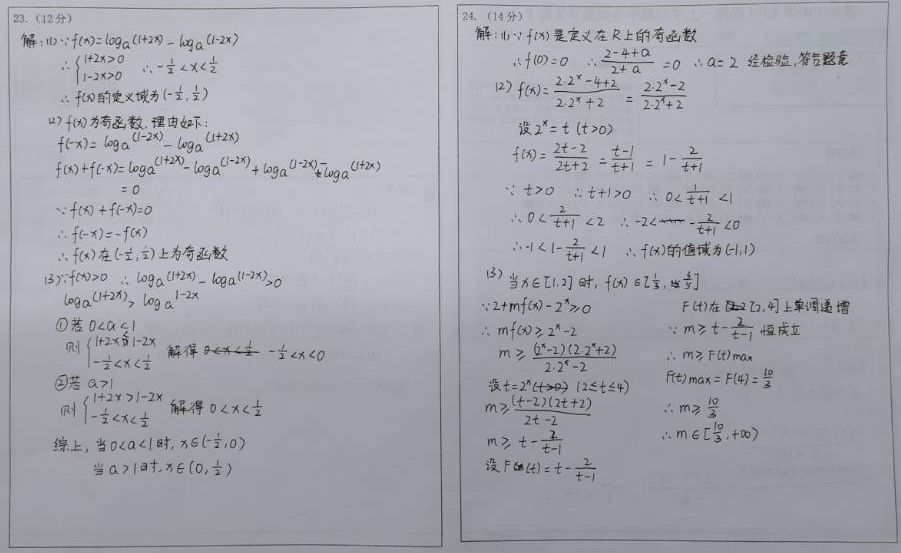 23.（12分）
解:(1)∵f(x)=loga(1+2x) - loga(1-2x)
∴{1+2x>0 1-2x>0 ∴-1/2<x<1/2
∴f(x)的定义域为(-1/2,1/2)
(2) f(x)为奇函数.理由如下:
f(-x)=loga(1-2x) - loga(1+2x)
f(x)+f(-x)=loga(1+2x)-loga(1-2x)+loga(1-2x)-loga(1+2x)
=0
∵f(x)+f(-x)=0
∴f(-x)=-f(x)
∴f(x)在(-1/2,1/2)上为奇函数
(3)∵f(x)>0 ∴loga(1+2x)-loga(1-2x)>0
loga(1+2x)>loga1-2x
①若0<a<1
则{1+2x<1-2x -1/2<x<1/2 解得 -1/2<x<0
②若 a>1
则{1+2x>1-2x -1/2<x<1/2 解得 0<x<1/2
综上,当0<a<1时,x∈(-1/2,0)
当a>1时,x∈(0,1/2)
24.（14分）
解:(1)∵f(x)是定义在R上的奇函数
∴f(0)=0 ∴(2-4+a)/(2+a)=0 ∴a=2 经检验,符合题意
(2) f(x)=(2·2^x-4+2)/(2·2^x+2)=(2·2^x-2)/(2·2^x+2)
设2^x=t(t>0)
f(x)=(2t-2)/(2t+2)=(t-1)/(t+1)=1-2/(t+1)
∵t>0 ∴t+1>0 ∴0<1/(t+1)<1
∴0<2/(t+1)<2 ∴-2<-2/(t+1)<0
∴-1<1-2/(t+1)<1 ∴f(x)的值域为(-1,1)
(3) 当x∈[1,2]时,f(x)∈[1/3,3/5]
∵2+mf(x)-2^x≥0
∴mf(x)≥2^x-2
m≥(2^x-2)(2·2^x+2)/(2·2^x-2)
设t=2^x(2≤t≤4)
m≥(t-2)(2t+2)/(2t-2)
m≥t-2/(t-1)
设F(t)=t-2/(t-1)
F(t)在[2,4]上单调递增
∵m≥t-2/(t-1)恒成立
∴m≥F(t)max
F(t)max=F(4)=10/3
∴m≥10/3
∴m∈[10/3,+∞)